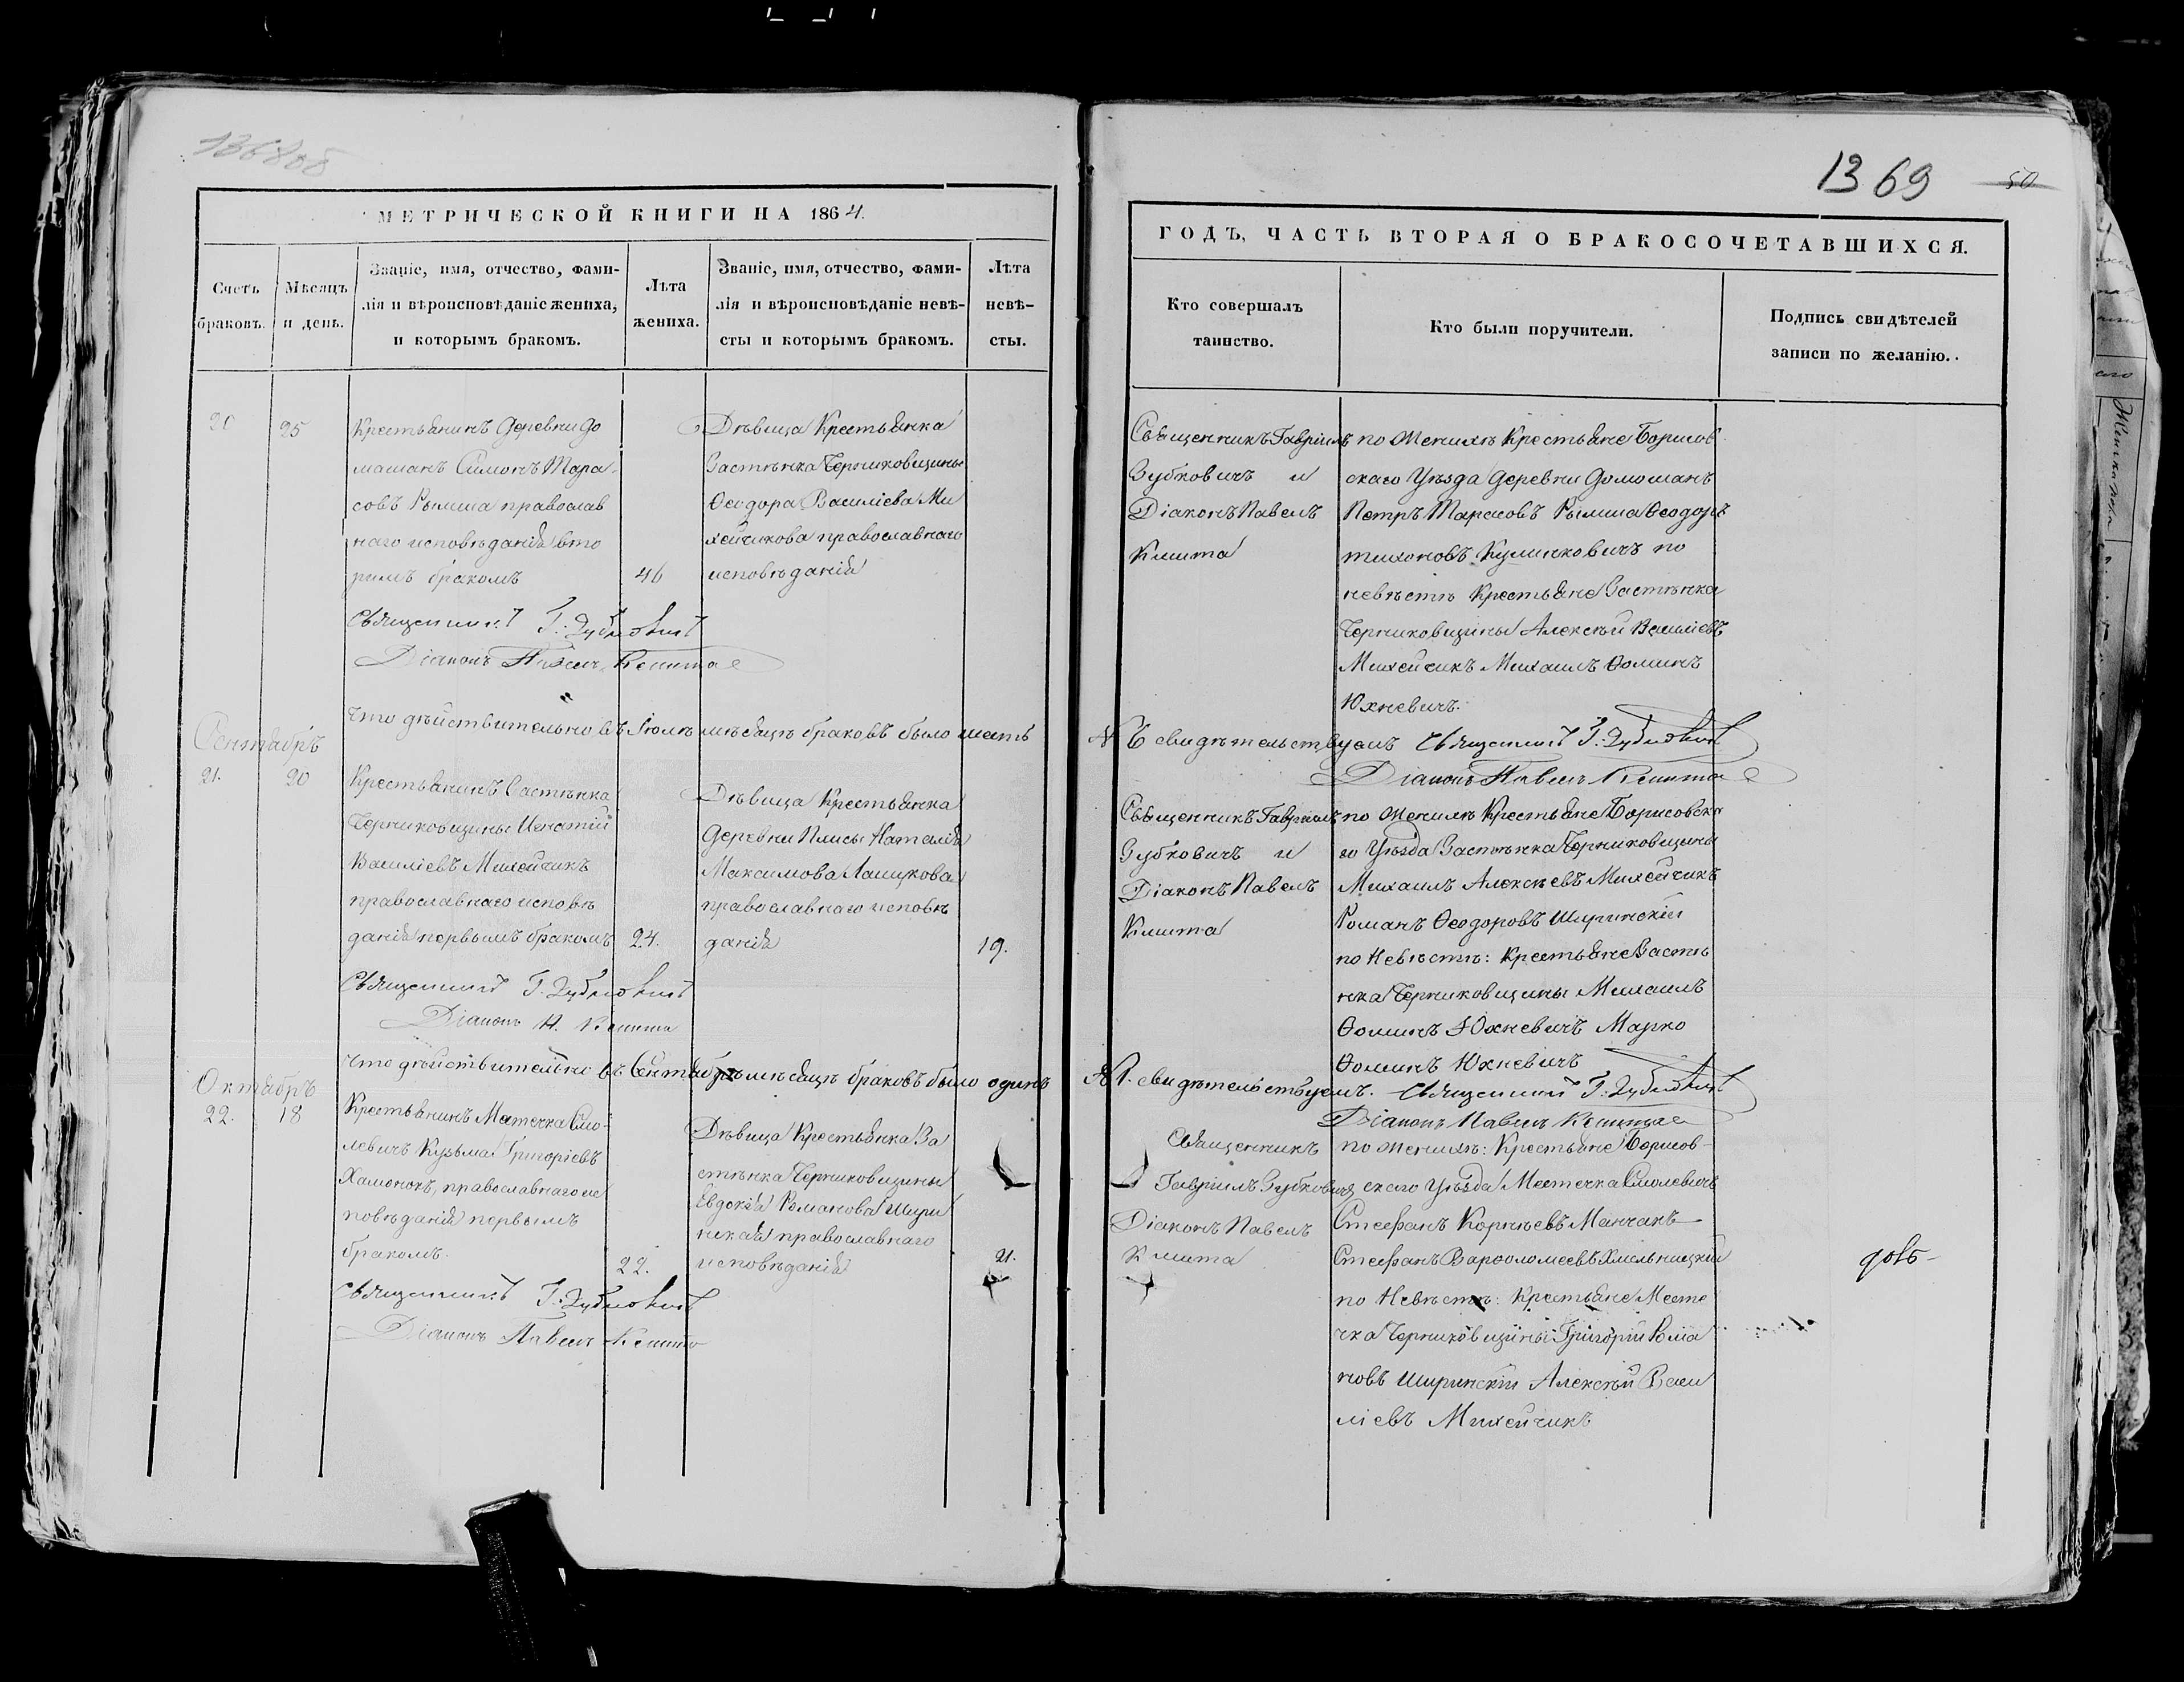 1368об
МЕТРИЧЕСКОЙ КНИГИ НА 1864.
Счетъ браковъ.
Мѣсяцъ и день.
Званіе, имя, отчество, фами-
лія и вѣроисповѣданіе жениха,
и которымъ бракомъ.
Лѣта
жениха.
Званіе, имя, отчество, фами-
лія и вѣроисповѣданіе невѣ-
сты и которымъ бракомъ.
Лѣта
невѣ-
сты.
20
25
Крестьянинъ деревни До
машанъ Симонъ Тара
совъ Рымша православ
наго исповѣданія вто
римъ бракомъ
46
Священникъ Г. Зубковичъ
Діаконъ Павелъ Клишта
Дѣвица Крестьянка
Застѣнка Черниковщины
Ѳеодора Василіева Ми
хейчикова православнаго
исповѣданія
Что дѣйствительно въ Іюлѣ мѣсяцѣ браковъ было шесть
Сентябрь
21.
20
Крестьянинъ Застѣнка
Черниковщины Игнатій
Василіевъ Михейчикъ
православнаго исповѣ
данія первымъ бракомъ
24.
Священникъ Г. Зубковичъ
Діаконъ П. Клишта
Дѣвица Крестьянка
Деревни Плисы Наталія
Максимова Лашукова
православнаго исповѣ
данія
19.
Что дѣйствительно въ Сентябрѣ мѣсяцѣ браковъ было одинъ
Октябрь
22.
18
Крестьянинъ Местечка Смо-
левичъ Кузьма Григоріевъ
Хамонокъ, православнаго ис
повѣданія первымъ
бракомъ.
22.
Священникъ Г. Зубковичъ
Діаконъ Павелъ Клишта
Дѣвица Крестьянка За
стѣнка Черниковщины
Евдокія Романова Шири
нская православнаго
исповѣданія
21.
1369
50
ГОДЪ, ЧАСТЬ ВТОРАЯ О БРАКОСОЧЕТАВШИХСЯ.
Кто совершалъ
таинство.
Кто были поручители.
Подпись свидѣтелей
записи по желанію.
Священникъ Гавріилъ
Зубковичъ и
Діаконъ Павелъ
Клишта
по женихѣ Крестьяне Борисов
скаго Уѣзда Деревни Домошанъ
Петръ Тарасовъ Рымша Ѳеодоръ
тихоновъ Кулинковичъ по
невѣстѣ Крестьяне Застѣнка
Черниковщины Алексѣй Василіевъ
Михейчикъ Михаилъ Ѳоминъ
Юхневичъ.
свидѣтельствуемъ Священникъ Г. Зубковичъ
Діаконъ Павелъ Клишта
Священникъ Гавріилъ
Зубковичъ и
Діаконъ Павелъ
Клишта
по женихѣ Крестьяне Борисовска
го Уѣзда Застѣнка Черниковщины
Михаилъ Алексѣевъ Михейчикъ
Романъ Ѳеодоровъ Ширинскій
по Невѣстѣ: Крестьяне Застѣ
нка Черниковщины Михаилъ
Ѳоминъ Юхневичъ Марко
Ѳоминъ Юхневичъ
свидѣтельствуемъ. Священникъ Г. Зубковичъ
Діаконъ Павелъ Клишта
Священникъ
Гавріилъ Зубковичъ
Діаконъ Павелъ
Клишта
по женихѣ: Крестьяне Борисов-
скаго Уѣзда Местечка Смолевичъ
Стефанъ Корнѣевъ Манчакъ
Стефанъ Варѳоломеевъ Хмельницкій
по Невѣстѣ: Крестьяне Месте
чка Черниковщины Григорій Рома
новъ Ширинскій Алексѣй Васи
ліевъ Михейчикъ